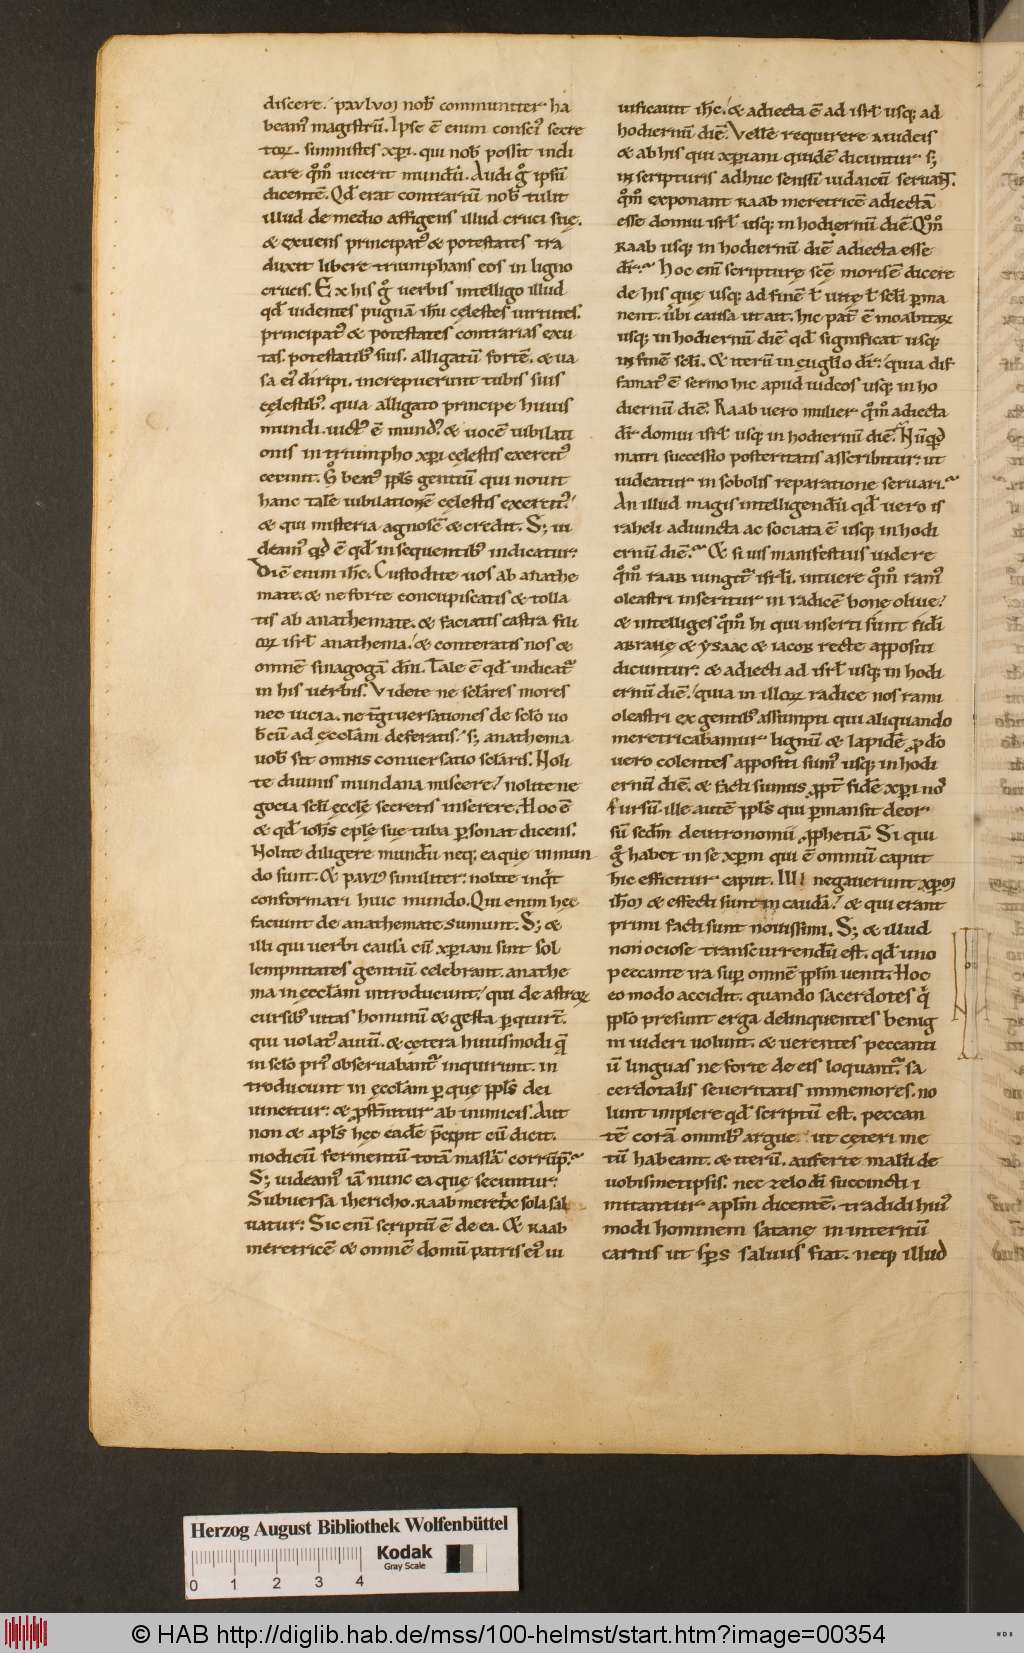 discere. pauluɱ nob̅ communiter ha
beam᷒ magistrū. Ipse ē enim consci᷒ secre
toꝝ. summistes xp̅i. qui nob̅ possit indi
care qm̊o uicerit mundū. Audi gͦ ipsū
dicentē. Qd̅ erat contrariū nob̅ tulit
illud de medio affigens illud cruci suę.
& exuens principat᷒ & potestates tra
duxit libere triumphans eos in ligno
crucis. Ex his gͦ uerbis intelligo illud
qd̅ uidentes pugnā ih̅u cęlestes uirtutes.
principat᷒ & potestates contrarias exu
tas. potestatib᷒ suis. alligatū fortē. & ua
sa ei᷒ diripi. increpuerunt tubis suis
cęlestib᷒. quia alligato principe huius
mundi. uict᷒ ē mund᷒. & uocem iubilati
onis in triumpho xp̅i cęlestis exercit᷒
cecinit. gͦ beat᷒ ppl̅s gentiū qui nouit
hanc talē iubilationē cęlestis exercit᷒.
& qui misteria agnoscē & credit. S; ui
deam᷒ qͥd ē qd̅ in sequentib᷒ indicatur.
Diē enim ih̅c. Custodite uos ab anathe
mate. & ne forte concupiscatis & tolla
tis ab anathemate. & faciatis castra fili
oꝝ isrl̅ anathema. & conteratis nos &
omnē sinagogā dn̅i. Tale ē qd̅ indicat᷑
in his uerbis. Videte ne sclares mores
nec uicia. ne t̅giuersationes de sclo uo
b̅cū ad ęccl̅am deferatis. s; anathema
uob̅ sit omnis conuersatio sclaris. Noli
te diuinis mundana miscere. nolite ne
gocia scli ęccl̅ę secretis inserere. Hoc ē
& qd̅ ioh̅s epl̅ę suę tuba ꝑsonat dicens.
Nolite diligere mundū neq; ea quę in mun
do sunt. & paul᷒ similiter. nolite inqͥt
conformari huic mundo. Qui enim hęc
faciunt de anathemate sumunt. S; &
illi qui uerbi causa cū xp̅iani sint sol
lempnitates gentiū celebrant. anathe
ma in ęccl̅am introducunt. qui de astroꝝ
cursib᷒ uitas hominū & gesta ꝑquirt̅.
qui uolat᷒ auiū. & cętera huiusmodi quę
in sclo pri᷒ obseruabant᷑ inquirunt. in
troducunt in ęccl̅am ꝑ que ppl̅s dei
uincitur. & ꝓsternitur ab inimicis. Aut
non & apl̅s hęc eadē p̅cepit cū dicit.
modicū fermentū totā massā corrūp̅.
S; uideam᷒ iā nunc ea quę secuntur.
Subuersa ihericho. raab meretrix sola sal
uatur. Sic enī scriptū ē de ea. & raab
meretricē & omnē domū patris ei᷒ ui
uificauit ih̅c. & adiecta ē ad isrl̅ usq; ad
hodiernū diē. Vellē requirere a iudeis
& ab his qui xp̅iani quidē dicuntur s;
in scripturis adhuc sensū iudaicū seruant.
qm̊o exponant raab meretricē adiectā
esse domui isrl̅ usq; in hodiernū diē. Qm̊o
raab usq; in hodiernū diē adiecta esse
dr̅. Hoc enī scripturę scę̅ moris ē dicere
de his quę usq; ad finē t̅ uitę t̅ scli ꝑma
nent. ubi causa ut ait. hic pat̅ ē moabitaꝝ
usq; in hodiernū diē qd̅ significat usq;
in finē scli. & iterū in euglio dr̅. quia dif
famat᷒ ē sermo hic apud iudeos usq; in ho
diernū diē. Raab uero mulier qm̊o adiecta
dr̅ domui isrl̅ usq; in hodiernū diē. Nūqͥd
matri successio posteritatis asscribitur. ut
uideatur in sobolis reparatione seruari.
An illud magis intelligendū qd̅ uero is
raheli adiuncta ac sociata ē usq; in hodi
ernū diē. & si uis manifestius uidere
qm̊o raab iungit᷑ isrl̅i. intuere qm̊o ram᷒
oleastri inseritur in radicē bonę oliuę.
& intelliges qm̊o hi qui inserti sunt fidei
abrahę & ysaac & iacob recte appositi
dicuntur. & adiecti ad isrl̅ usq; in hodi
ernū diē. quia in illoꝝ radice nos rami
oleastri ex gentib᷒ assumpti qui aliquando
meretricabamur lignū & lapidē ꝓ dō
uero colentes appositi sum᷒ usq; in hodi
ernū diē. & facti sumus ꝓpt̅ fidē xp̅i no᷒
sursū. ille autē ppl̅s qui ꝑmansit deor
sū sedm deutronomii ꝓphetiā. Si qui
gͦ habet in se xp̅m qui ē omniū caput
hic efficitur caput. Illi negauerunt xp̅oɱ
ih̅oɱ & effecti sunt in caudā. & qui erant
primi facti sunt nouissimi. S; & illud
non ociose transcurrendū est. qd̅ uno
peccante ira suꝑ omnē ppl̅m uenit. Hoc
eo modo accidit. quando sacerdotes qͥ
ppl̅o presunt erga delinquentes benig
ni uideri uolunt. & uerentes peccanti
ū linguas ne forte de eis loquant᷑. sa
cerdotalis seueritatis immemores. no
lunt implere qd̅ scriptū est. peccan
tē corā omnib᷒ argue. ut cęteri me
tū habeant. & iterū. auferte malū de
uobismetipsis. nec zelo di̅ succincti i
mitantur apl̅m dicentē. tradidi hui᷒
modi hominem satanę in interitū
carnis ut sp̅s saluus fiat. neq; illud
Herzog August Bibliothek Wolfenbüttel
Kodak
Gray Scale
0 1 2 3 4
© HAB http://diglib.hab.de/mss/100-helmst/start.htm?image=00354